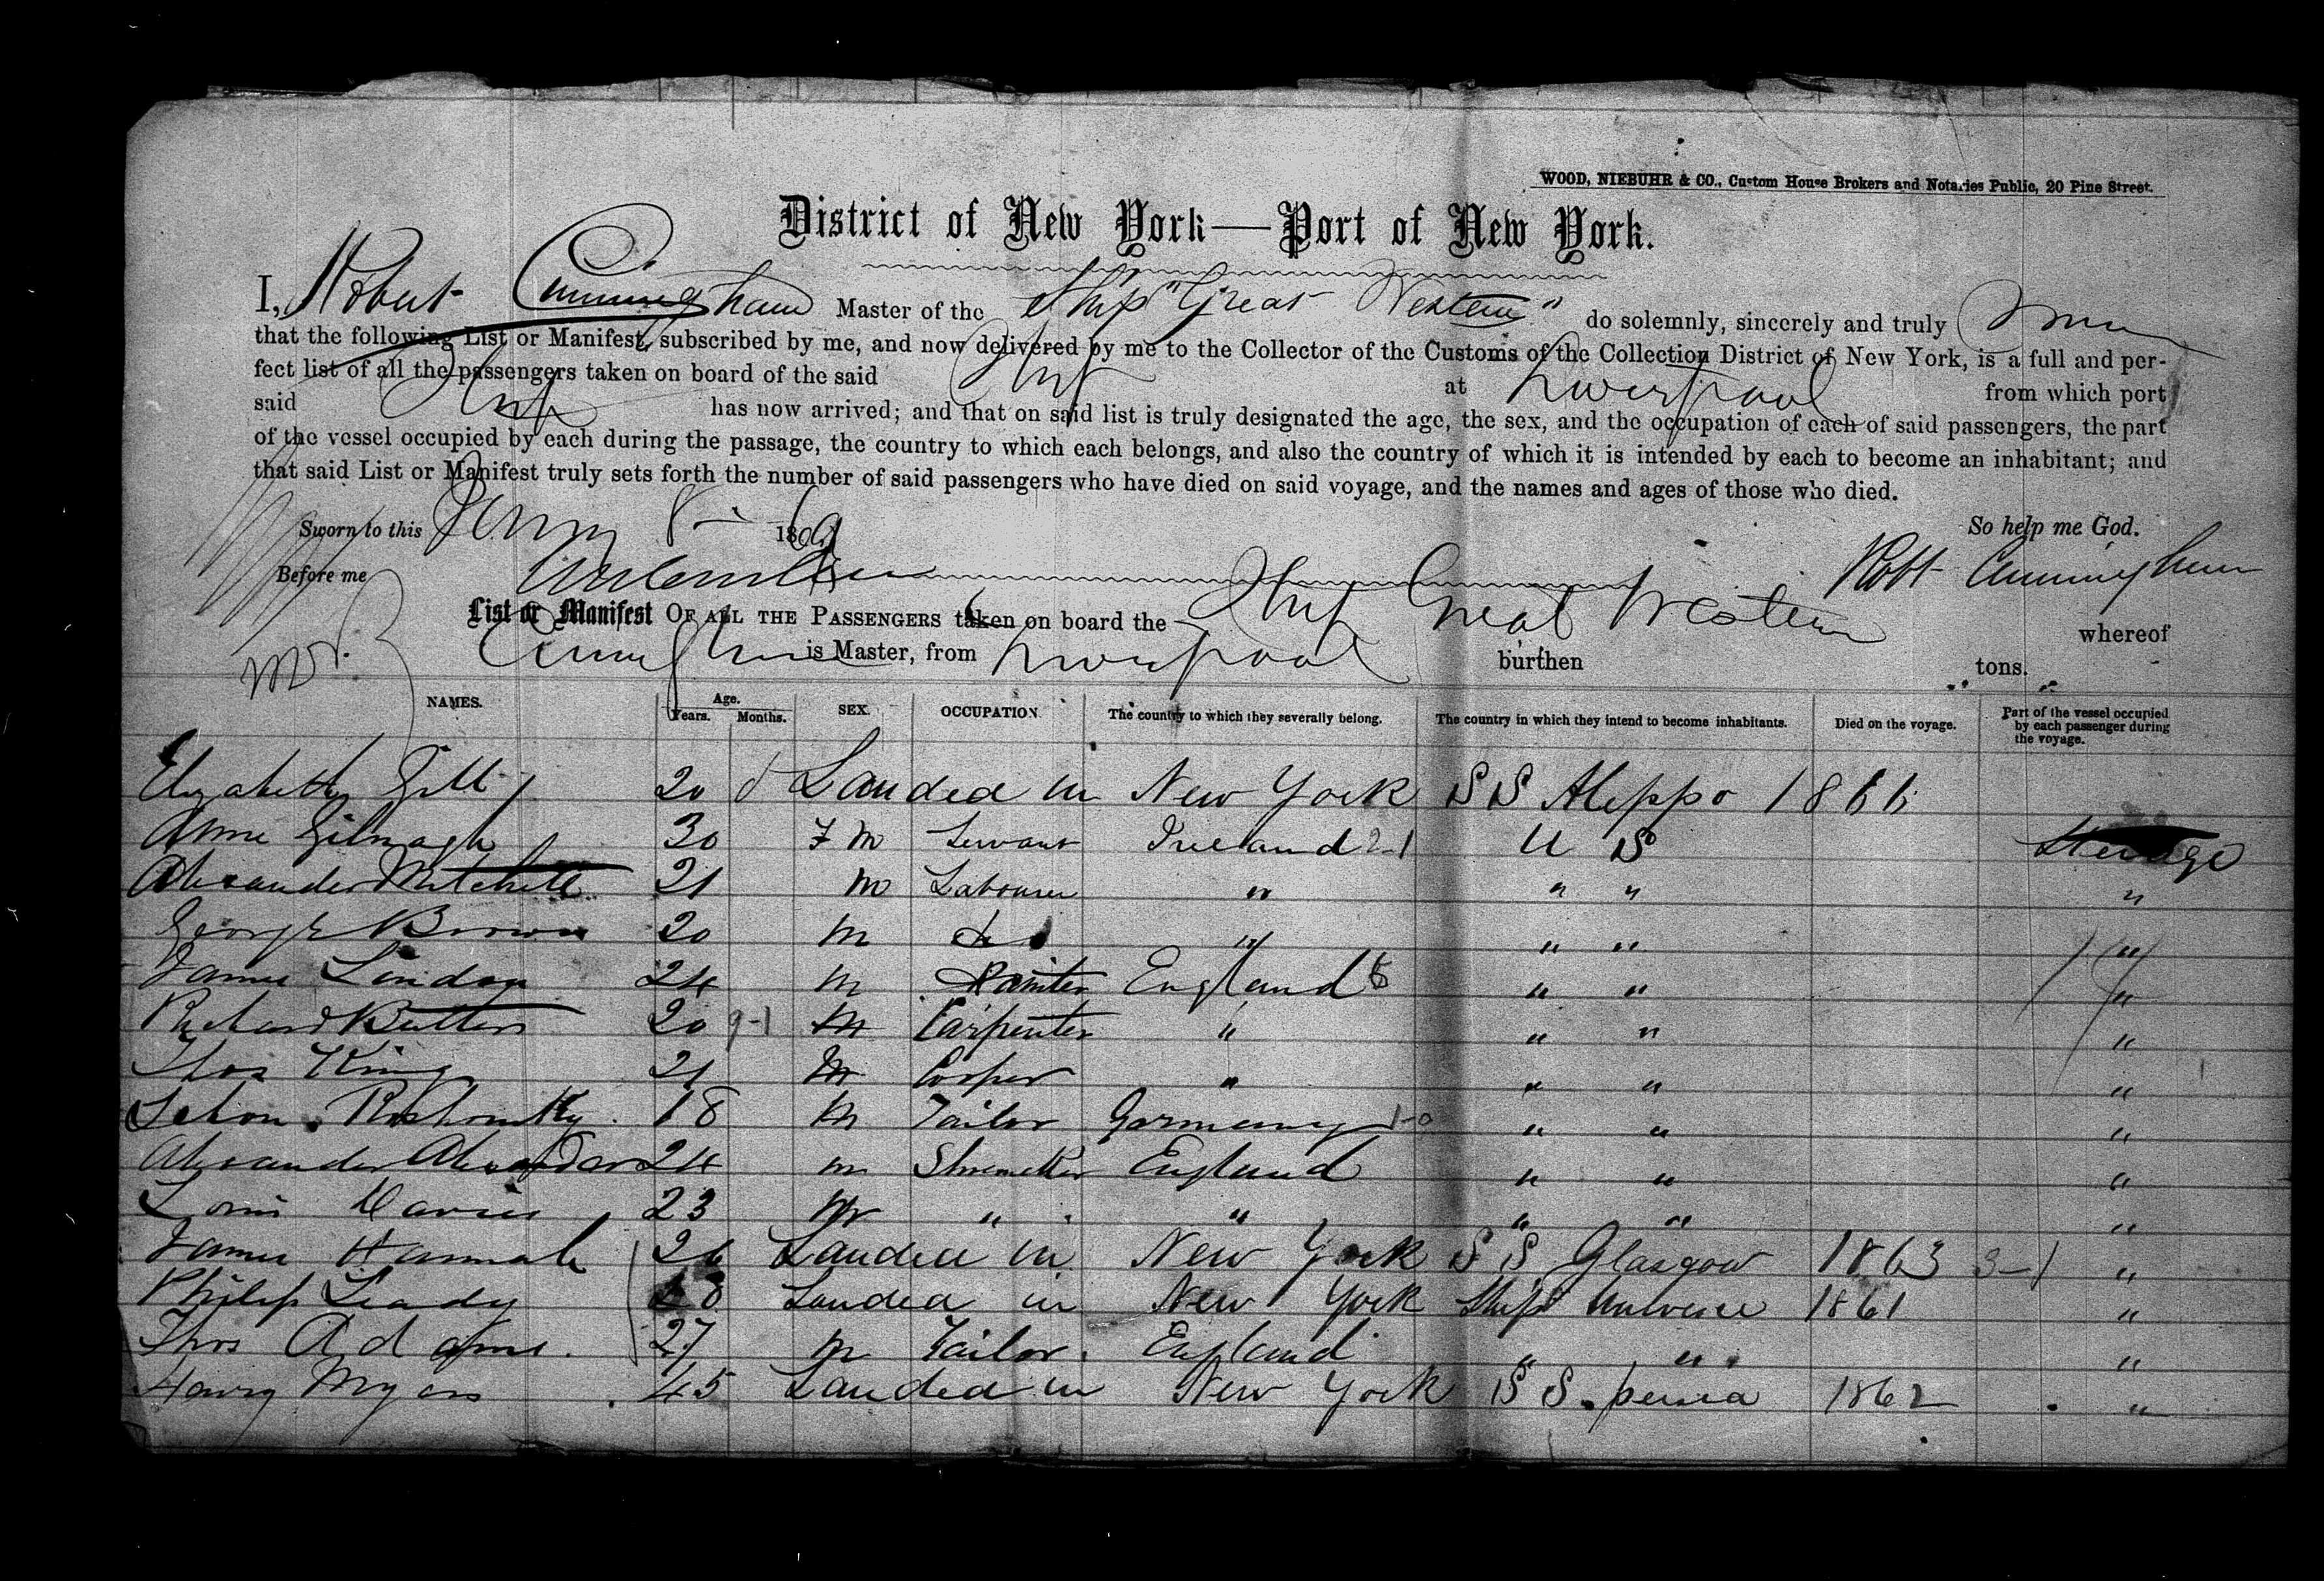 WOOD, NIEBUHR & CO., Custom House Brokers and Notaries Public, 20 Pine Street.
District of New York—Port of New York.
I, Robert Cunningham Master of the Ship "Great Western" do solemnly, sincerely and truly
that the following List or Manifest, subscribed by me, and now delivered by me to the Collector of the Customs of the Collection District of New York, is a full and per-
fect list of all the passengers taken on board of the said Ship at Liverpool from which port
said Ship has now arrived; and that on said list is truly designated the age, the sex, and the occupation of each of said passengers, the part
of the vessel occupied by each during the passage, the country to which each belongs, and also the country of which it is intended by each to become an inhabitant; and
that said List or Manifest truly sets forth the number of said passengers who have died on said voyage, and the names and ages of those who died.
Sworn to this 8 1869 So help me God.
Before me Robt Cunningham
List or Manifest OF ALL THE PASSENGERS taken on board the Ship Great Western whereof
Cunningham is Master, from Liverpool burthen tons.
NAMES. Age. Years. Months. SEX. OCCUPATION The country to which they severally belong. The country in which they intend to become inhabitants. Died on the voyage. Part of the vessel occupied by each passenger during the voyage.
Elizabeth Gill 20 Landed in New York SS Aleppo 1866
Anne Gilmagh 30 F m Servant Ireland 2-1 U S Steerage
Alexander Mitchell 21 m Labourer " " " "
George Brown 20 m do " " " "
James Lindon 24 m Painter England " " "
Richard Butters 20 9-1 m Carpenter " " " "
Thos King 21 m Cooper " " " "
18 m Tailor Germany 1-0 " " "
Alexander Alexander 24 m Shoemaker England " " "
Louis Davies 23 m " " " " "
James Hannah 26 Landed in New York S S Glasgow 1863 3-1 "
Philip Leady 28 Landed in New York Ship Universe 1861 "
Thos Adams. 27 m Tailor. England " " "
Henry Myers 45 Landed in New York S S persia 1862 "